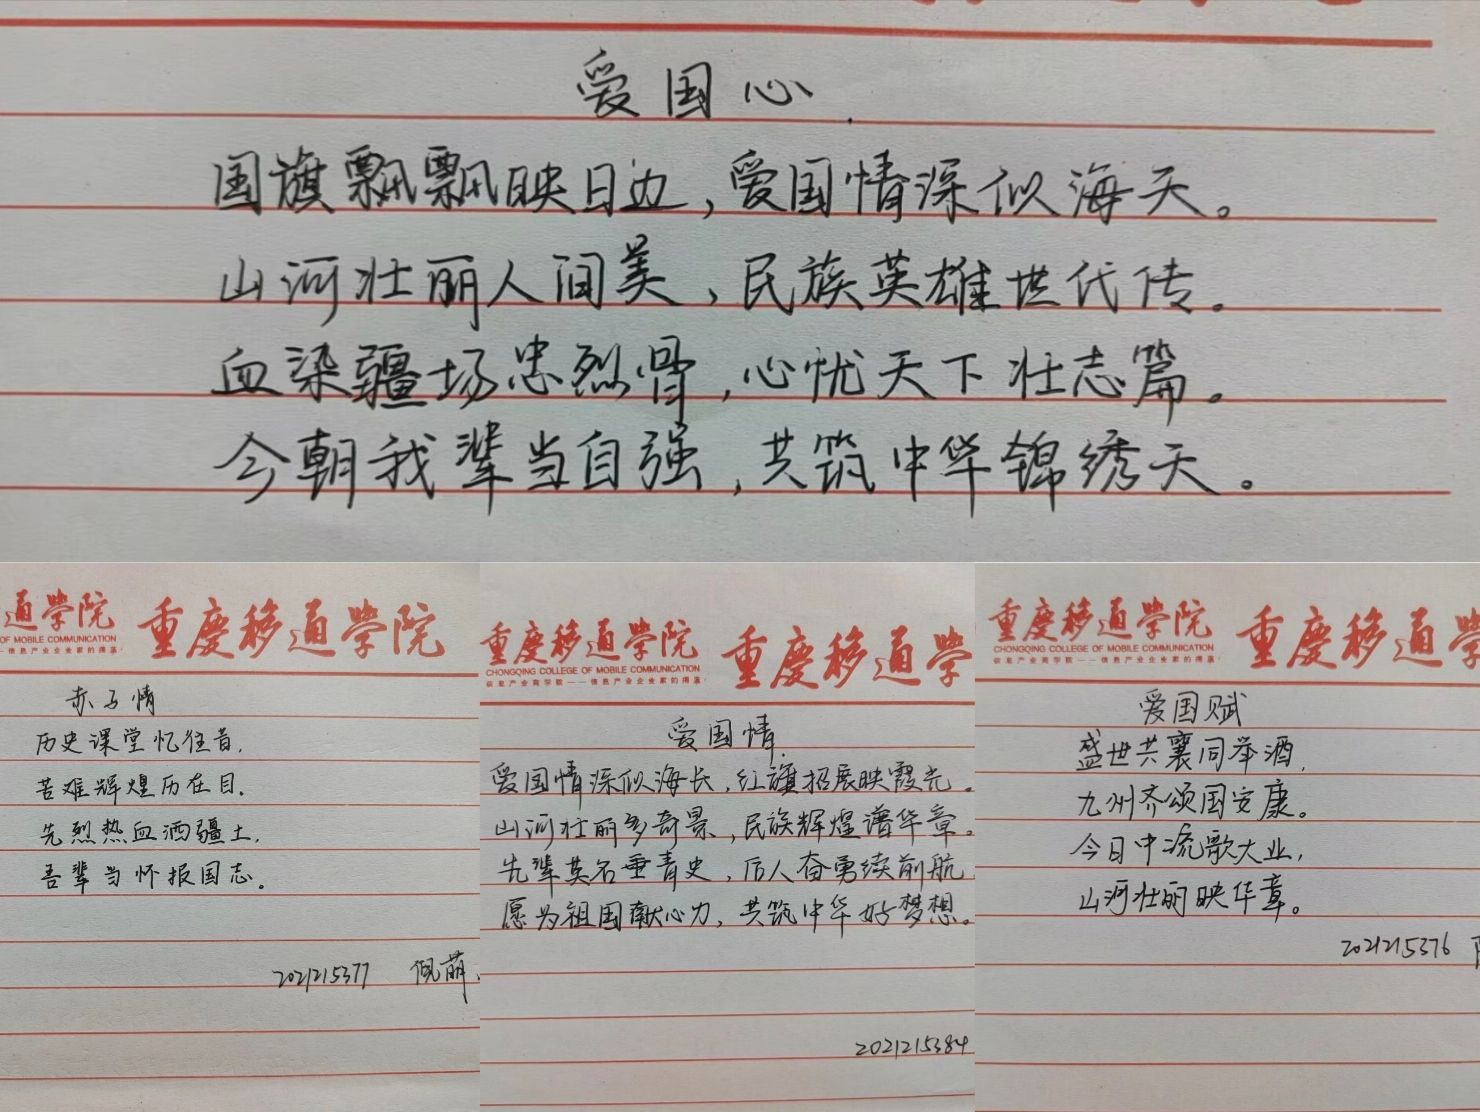 爱国心
国旗飘飘映日边，爱国情深似海天。
山河壮丽人间美，民族英雄世代传。
血染疆场忠烈骨，心忧天下壮志篇。
今朝我辈当自强，共筑中华锦绣天。
通学院 重庆移通学院
OF MOBILE COMMUNICATION
信息产业企业家的摇篮
赤子情
历史课堂忆往昔，
苦难辉煌历在目。
先烈热血洒疆土，
吾辈当怀报国志。
2021215377 佩萌
重庆移通学院 重庆移通学
CHONGQING COLLEGE OF MOBILE COMMUNICATION
信息产业商学院——信息产业企业家的摇篮
爱国情
爱国情深似海长，红旗招展映霞光。
山河壮丽多奇景，民族辉煌谱华章。
先辈英名垂青史，后人奋勇续前航
愿为祖国献心力，共筑中华好梦想。
2021215384
重庆移通学院 重庆移通学
CHONGQING COLLEGE OF MOBILE COMMUNICATION
信息产业商学院——信息产业企业家的摇篮
爱国赋
盛世共襄同举酒，
九州齐颂国安康。
今日中流歌大业，
山河壮丽映华章。
2021215376